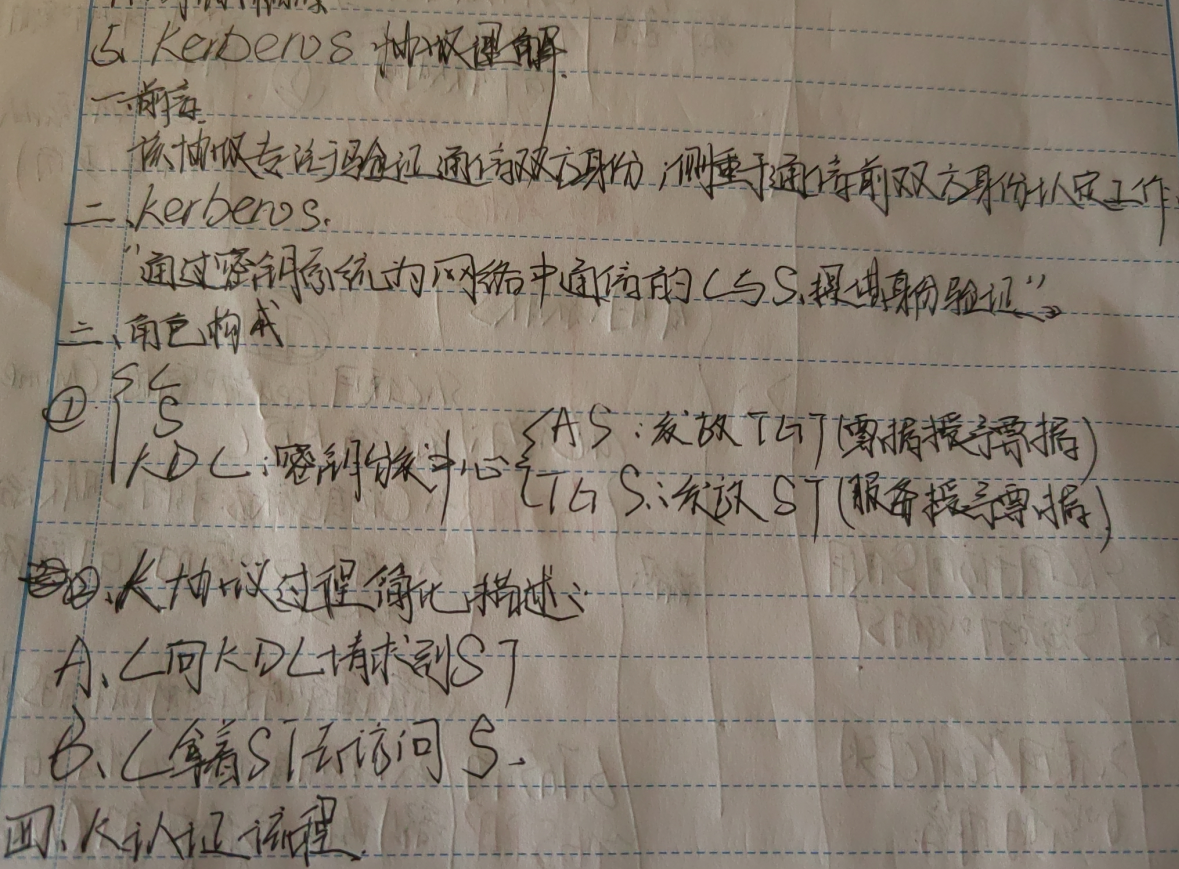 5. Kerberos 协议理解.
一.前言.
该协议专注于验证通信双方身份,侧重于通信前双方身份认定工作.
二、Kerberos.
“通过密钥系统为网络中通信的C与S.提供身份验证”
三、角色构成
① { C
S
KDC:密钥分发中心 { AS:发放TGT(票据授予票据)
TGS:发放ST(服务授予票据)
②、K协议过程简化描述:
A、C向KDC请求到ST
B、C拿着ST去访问S.
四、K认证流程.